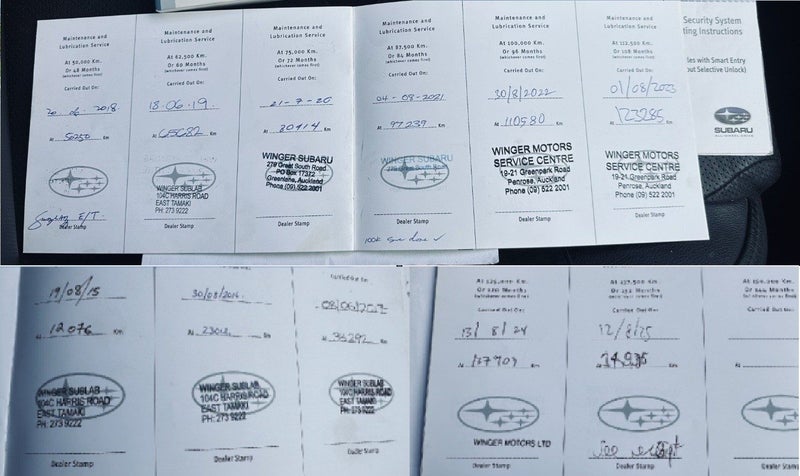 Maintenance and
Lubrication Service
At 50,000 Km.
Or 48 Months
(whichever comes first)
Carried Out On:
2018
At 50250 Km
E/T.
Dealer Stamp
Maintenance and
Lubrication Service
At 62,500 Km.
Or 60 Months
(whichever comes first)
Carried Out On:
18.06.19.
At 65682 Km
WINGER SUBLAB
104C HARRIS ROAD
EAST TAMAKI
PH: 273 9222
Dealer Stamp
Maintenance and
Lubrication Service
At 75,000 Km.
Or 72 Months
(whichever comes first)
Carried Out On:
21-7-20
At 80414 Km
WINGER SUBARU
Great South Road
PO Box 17372
Greenlane, Auckland
Phone (09) 522 2001
Dealer Stamp
Maintenance and
Lubrication Service
At 87,500 Km.
Or 84 Months
(whichever comes first)
Carried Out On:
04-08-2021
At 97239 Km
WINGER SUBARU
Dealer Stamp
100K done ✓
Maintenance and
Lubrication Service
At 100,000 Km.
Or 96 Months
(whichever comes first)
Carried Out On:
30/8/2022
At 110580 Km
WINGER MOTORS
SERVICE CENTRE
19-21 Greenpark Road
Penrose, Auckland
Phone (09) 522 2001
Dealer Stamp
Maintenance and
Lubrication Service
At 112,500 Km.
Or 108 Months
(whichever comes first)
Carried Out On:
01/08/2023
At 123285 Km
WINGER MOTORS
SERVICE CENTRE
19-21 Greenpark Road
Penrose, Auckland
Phone (09) 522 2001
Dealer Stamp
Security System
ting Instructions
les with Smart Entry
out Selective Unlock)
SUBARU
19/08/15
At 12076 Km
WINGER SUBLAB
104C HARRIS ROAD
EAST TAMAKI
PH: 273 9222
Dealer Stamp
30/08/2016.
At Km
WINGER SUBLAB
104C HARRIS ROAD
EAST TAMAKI
PH: 273 9222
Dealer Stamp
Carried Out On:
At 35292 Km
WINGER SUBLAB
104C HARRIS ROAD
EAST TAMAKI
PH: 273 9222
Dealer Stamp
At 125,000 Km.
Or 120 Months
(whichever comes first)
Carried Out On:
13/8/24
At Km
WINGER MOTORS LTD
Dealer Stamp
At 137,500 Km.
Or 132 Months
(whichever comes first)
Carried Out On:
12/8/25
At Km
See receipt
Dealer Stamp
At 150,000 Km.
Or 144 Months
(whichever comes first)
Carried Out On:
At
Dealer Stamp